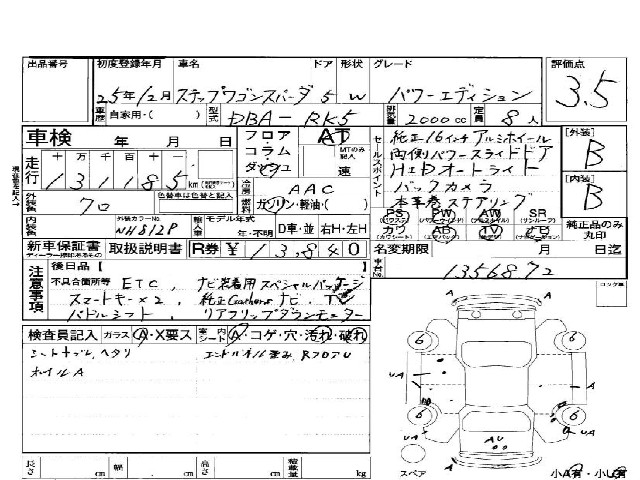 出品番号 初度登録年月 車名 ドア 形状 グレード 評価点
25年12月 ステップワゴンスパーダ 5 W パワーエディション 3.5
車歴 自家用・( ) 型式 DBA-RK5 排気量 2000cc 定員 8人
車検 年 月 日 フロア・コラム・ダッシュ AT MTのみ記入 速
走行 十万 千 百 十 一
131185 km
外装色 クロ 色替車は色替と記入
冷房 AAC
燃料 ガソリン・軽油・( )
内装色 外装カラーNo. NH812P 輸入車 モデル年式 年・不明 D車・並 右H・左H
新車保証書 取扱説明書 R券 ¥ 13,840
ディーラー捺印あるもの
セールスポイント 純正16インチアルミホイール
両側パワースライドドア
HIDオートライト
バックカメラ
本革巻ステアリング
PS PW AW SR
カワ AB TV ナビ
[外装] B
[内装] B
純正品のみ丸印
名変期限 月 日迄
車台No. 1356872
注意事項 後日品【 】
不具合箇所等 ETC、ナビ装着用スペシャルパッケージ
スマートキー×2、純正Gathersナビ、TV
パドルシフト、リアフリップダウンモニター
検査員記入 ガラス A・X要ス 室内シート A・コゲ・穴・汚れ・破れ
ホイルA
長さ cm 幅 cm 高さ cm 積載量 kg
ロック車
6 6
UA A A
A
6 6
UA A
AU
A
スペア 小A有・小U有